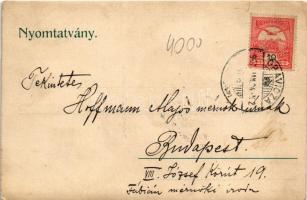 Nyomtatvány.
4000
Tekintetes
Hoffmann Alajos mérnök úrnak
Budapest.
VIII. József Körút 19.
Fábián mérnöki iroda